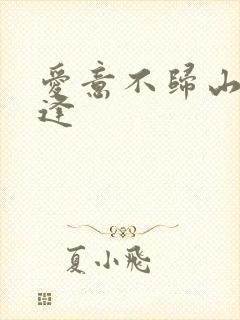 愛意不歸山
逢
夏小飛